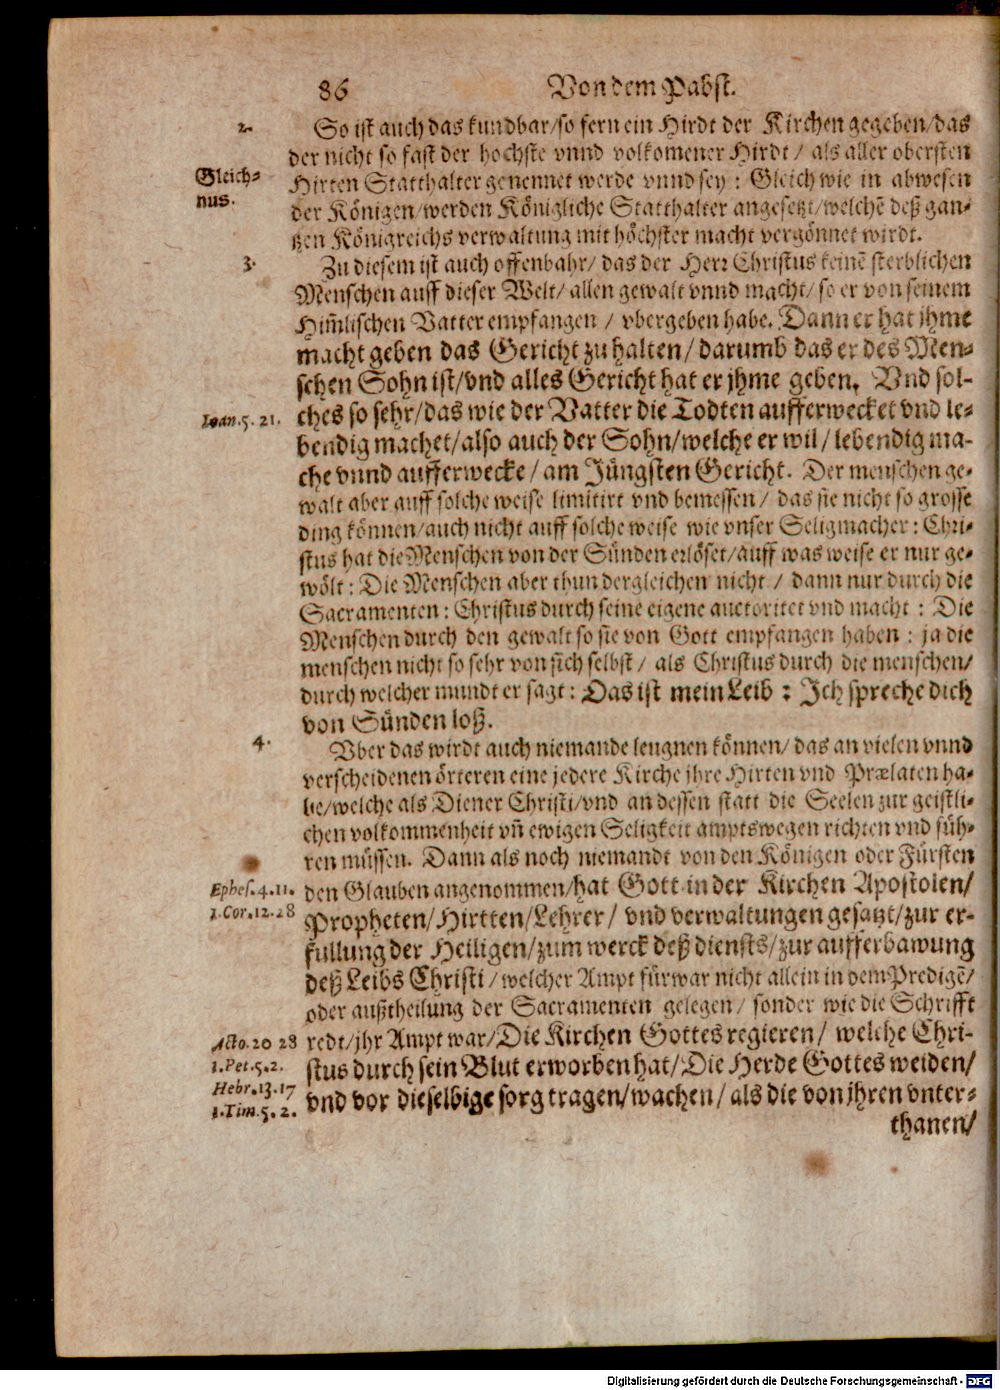 86 Von dem Pabst.
2. So ist auch das kundbar/so fern ein Hirdt der Kirchen gegeben/das
der nicht so fast der hochste vnnd volkomener Hirdt/ als aller obersten
Gleich-
nus.
Hirten Statthalter genennet werde vnnd sey: Gleich wie in abwesen
der Königen/werden Königliche Statthalter angesetzt/welchē deß gan-
tzen Königreichs verwaltung mit höchster macht vergönnet wirdt.
3. Zu diesem ist auch offenbahr/ das der Herr Christus keinē sterblichen
Menschen auff dieser Welt/ allen gewalt vnnd macht/ so er von seinem
Him̄lischen Vatter empfangen / vbergeben habe. Dann er hat jhme
macht geben das Gericht zu halten/ darumb das er des Men-
schen Sohn ist/vnd alles Gericht hat er jhme geben. Vnd sol-
Ioan.5.21.
ches so sehr/das wie der Vatter die Todten aufferwecket vnd le-
bendig machet/also auch der Sohn/welche er wil/ lebendig ma-
che vnnd aufferwecke/ am Jüngsten Gericht. Der menschen ge-
walt aber auff solche weise limitirt vnd bemessen/ das sie nicht so grosse
ding können/auch nicht auff solche weise wie vnser Seligmacher: Chri-
stus hat die Menschen von der Sünden erlöset/auff was weise er nur ge-
wölt: Die Menschen aber thun dergleichen nicht / dann nur durch die
Sacramenten: Christus durch seine eigene auctoritet vnd macht: Die
Menschen durch den gewalt so sie von Gott empfangen haben: ja die
menschen nicht so sehr von sich selbst/ als Christus durch die menschen/
durch welcher mundt er sagt: Das ist mein Leib: Jch spreche dich
von Sünden loß.
4. Vber das wirdt auch niemande leugnen können/ das an vielen vnnd
verscheidenen örteren eine jedere Kirche jhre Hirten vnd Prælaten ha-
be/welche als Diener Christi/vnd an dessen statt die Seelen zur geistli-
chen volkommenheit vn̄ ewigen Seligkeit amptswegen richten vnd füh-
ren müssen. Dann als noch niemandt von den Königen oder Fürsten
Ephes.4.11.
1.Cor.12.28
den Glauben angenommen/hat Gott in der Kirchen Apostolen/
Propheten/Hirtten/Lehrer/ vnd verwaltungen gesatzt/zur er-
füllung der Heiligen/zum werck deß diensts/zur aufferbawung
deß Leibs Christi/welcher Ampt fürwar nicht allein in dem Predigē/
oder außtheilung der Sacramenten gelegen/ sonder wie die Schrifft
Acto.20 28
1.Pet.5.2.
Hebr.13.17
1.Tim.5.2.
redt/jhr Ampt war/Die Kirchen Gottes regieren/ welche Chri-
stus durch sein Blut erworben hat/Die Herde Gottes weiden/
vnd vor dieselbige sorg tragen/wachen/ als die von jhren vnter-
thanen/
Digitalisierung gefördert durch die Deutsche Forschungsgemeinschaft - DFG